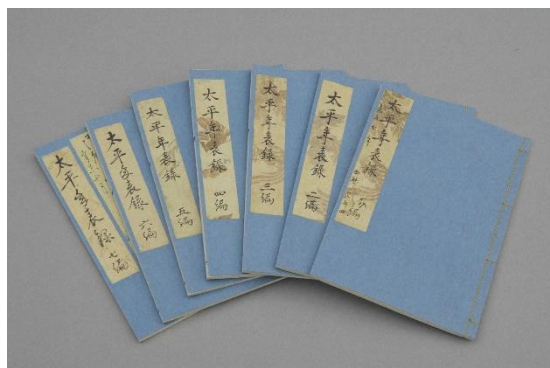 太平年表録 初編
太平年表録 二編
太平年表録 三編
太平年表録 四編
太平年表録 五編
太平年表録 六編
太平年表録 七編